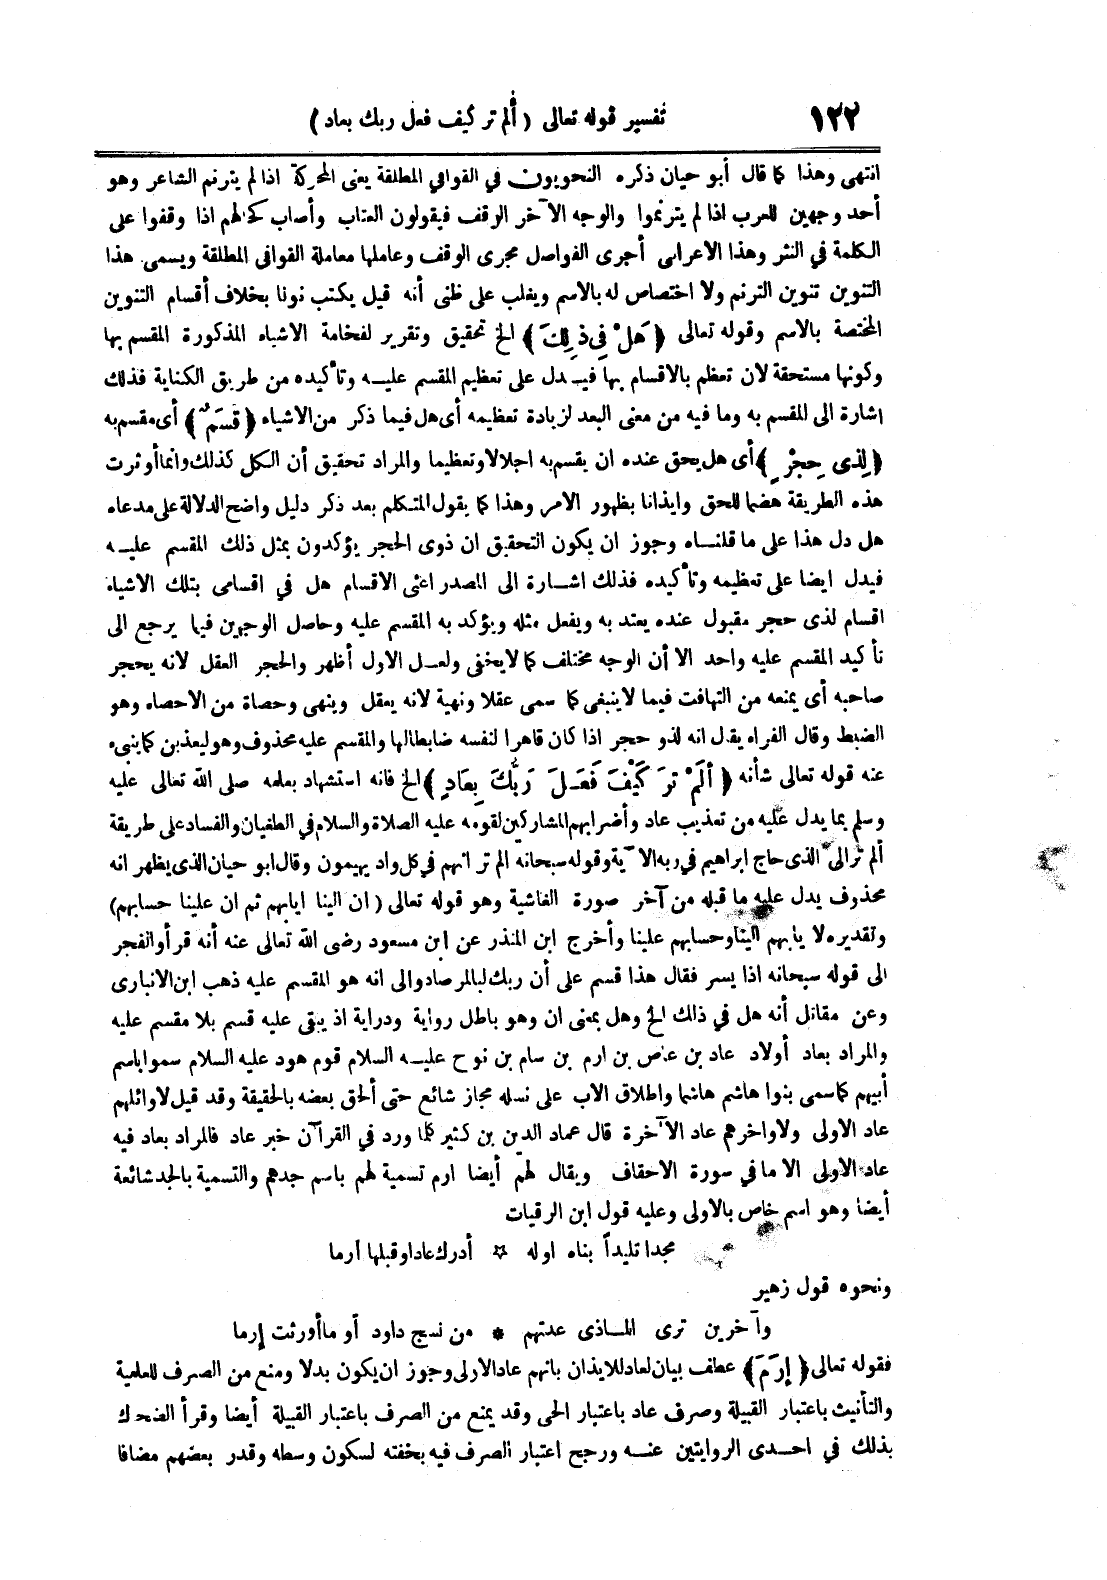 ١٢٢ تفسير قوله تعالى ( ألم تر كيف فعل ربك بعاد )
انتهى وهذا كما قال أبو حيان ذكره النحويون في القوافي المطلقة يعنى المحركة اذا لم يترنم الشاعر وهو
أحد وجهين للعرب اذا لم يترنموا والوجه الآخر الوقف فيقولون العتاب وأصاب كحالهم اذا وقفوا على
الكلمة في النثر وهذا الاعرابى أجرى الفواصل مجرى الوقف وعاملها معاملة القوافى المطلقة ويسمى هذا
التنوين تنوين الترنم ولا اختصاص له بالاسم ويغلب على ظنى أنه قيل يكتب نونا بخلاف أقسام التنوين
المختصة بالاسم وقوله تعالى ﴿ هَلْ فِى ذَلِكَ ﴾ الخ تحقيق وتقرير لفخامة الاشياء المذكورة المقسم بها
وكونها مستحقة لان تعظم بالاقسام بها فيـدل على تعظيم المقسم عليـه وتأكيده من طريق الكناية فذلك
اشارة الى المقسم به وما فيه من معنى البعد لزيادة تعظيمه أى هل فيما ذكر من الاشياء ﴿ قَسَمٌ ﴾ أى مقسم به
﴿ لِذِى حِجْرٍ ﴾ أى هل يحق عنده ان يقسم به اجلالا وتعظيما والمراد تحقيق أن الكل كذلك وانما أوثرت
هذه الطريقة هضما للحق وايذانا بظهور الامر وهذا كما يقول المتكلم بعد ذكر دليل واضح الدلالة على مدعاه
هل دل هذا على ما قلنـاه وجوز ان يكون التحقيق ان ذوى الحجر يؤكدون بمثل ذلك المقسم عليـه
فيدل ايضا على تعظيمه وتأكيده فذلك اشـارة الى المصدر اعنى الاقسام هل في اقسامى بتلك الاشياء
اقسام لذى حجر مقبول عنده يعتد به ويفعل مثله ويؤكد به المقسم عليه وحاصل الوجهين فيما يرجع الى
تأكيد المقسم عليه واحد الا أن الوجه مختلف كما لا يخفى ولعـل الاول أظهر والحجر العقل لانه يحجر
صاحبه أى يمنعه من التهافت فيما لا ينبغى كما سمى عقلا ونهية لانه يعقل وينهى وحصاة من الاحصاء وهو
الضبط وقال الفراء يقال انه لذو حجر اذا كان قاهرا لنفسه ضابطا لها والمقسم عليه محذوف وهو ليعذبن كما ينبىء
عنه قوله تعالى شأنه ﴿ أَلَمْ تَرَ كَيْفَ فَعَـلَ رَبُّكَ بِعَادٍ ﴾ الخ فانه استشهاد بعلمه صلى الله تعالى عليه
وسلم بما يدل عليه من تعذيب عاد وأضرابهم المشاركين لقومه عليه الصلاة والسلام في الطغيان والفساد على طريقة
ألم تر الى الذى حاج ابراهيم في ربه الآية وقوله سبحانه الم تر انهم في كل واد يهيمون وقال ابو حيان الذى يظهر انه
محذوف يدل عليه ما قبله من آخر صورة الغاشية وهو قوله تعالى ( ان الينا ايابهم ثم ان علينا حسابهم )
وتقديره لا يابهم الينا وحسابهم علينا وأخرج ابن المنذر عن ابن مسعود رضى الله تعالى عنه أنه قرأ والفجر
الى قوله سبحانه اذا يسر فقال هذا قسم على أن ربك لبالمرصاد والى انه هو المقسم عليه ذهب ابن الانبارى
وعن مقاتل أنه هل في ذلك الخ وهل بمعنى ان وهو باطل رواية ودراية اذ يبقى عليه قسم بلا مقسم عليه
والمراد بعاد أولاد عاد بن عاص بن ارم بن سام بن نوح عليـه السلام قوم هود عليه السلام سموا باسم
أبيهم كما سمى بنوا هاشم هاشما واطلاق الاب على نسله مجاز شائع حتى ألحق بعضه بالحقيقة وقد قيل لاوائلهم
عاد الاولى ولاواخرهم عاد الآخرة قال عماد الدين بن كثير كلما ورد في القرآن خبر عاد فالمراد بعاد فيه
عاد الاولى الا ما في سورة الاحقاف ويقال لهم أيضا ارم تسمية لهم باسم جدهم والتسمية بالجد شائعة
أيضا وهو اسم خاص بالاولى وعليه قول ابن الرقيات
مجدا تليداً بناه اوله ☆ أدرك عادا وقبلها أرما
ونحوه قول زهير
وآخرين ترى المـاذى عدتهم * من نسج داود أو ما أورثت إرما
فقوله تعالى ﴿ إِرَمَ ﴾ عطف بيان لعاد للايذان بانهم عاد الاولى وجوز ان يكون بدلا ومنع من الصرف للعلمية
والتأنيث باعتبار القبيلة وصرف عاد باعتبار الحى وقد يمنع من الصرف باعتبار القبيلة أيضا وقرأ الضحك
بذلك في احـدى الروايتين عنـه ورجح اعتبار الصرف فيه بخفته لسكون وسطه وقدر بعضهم مضافا